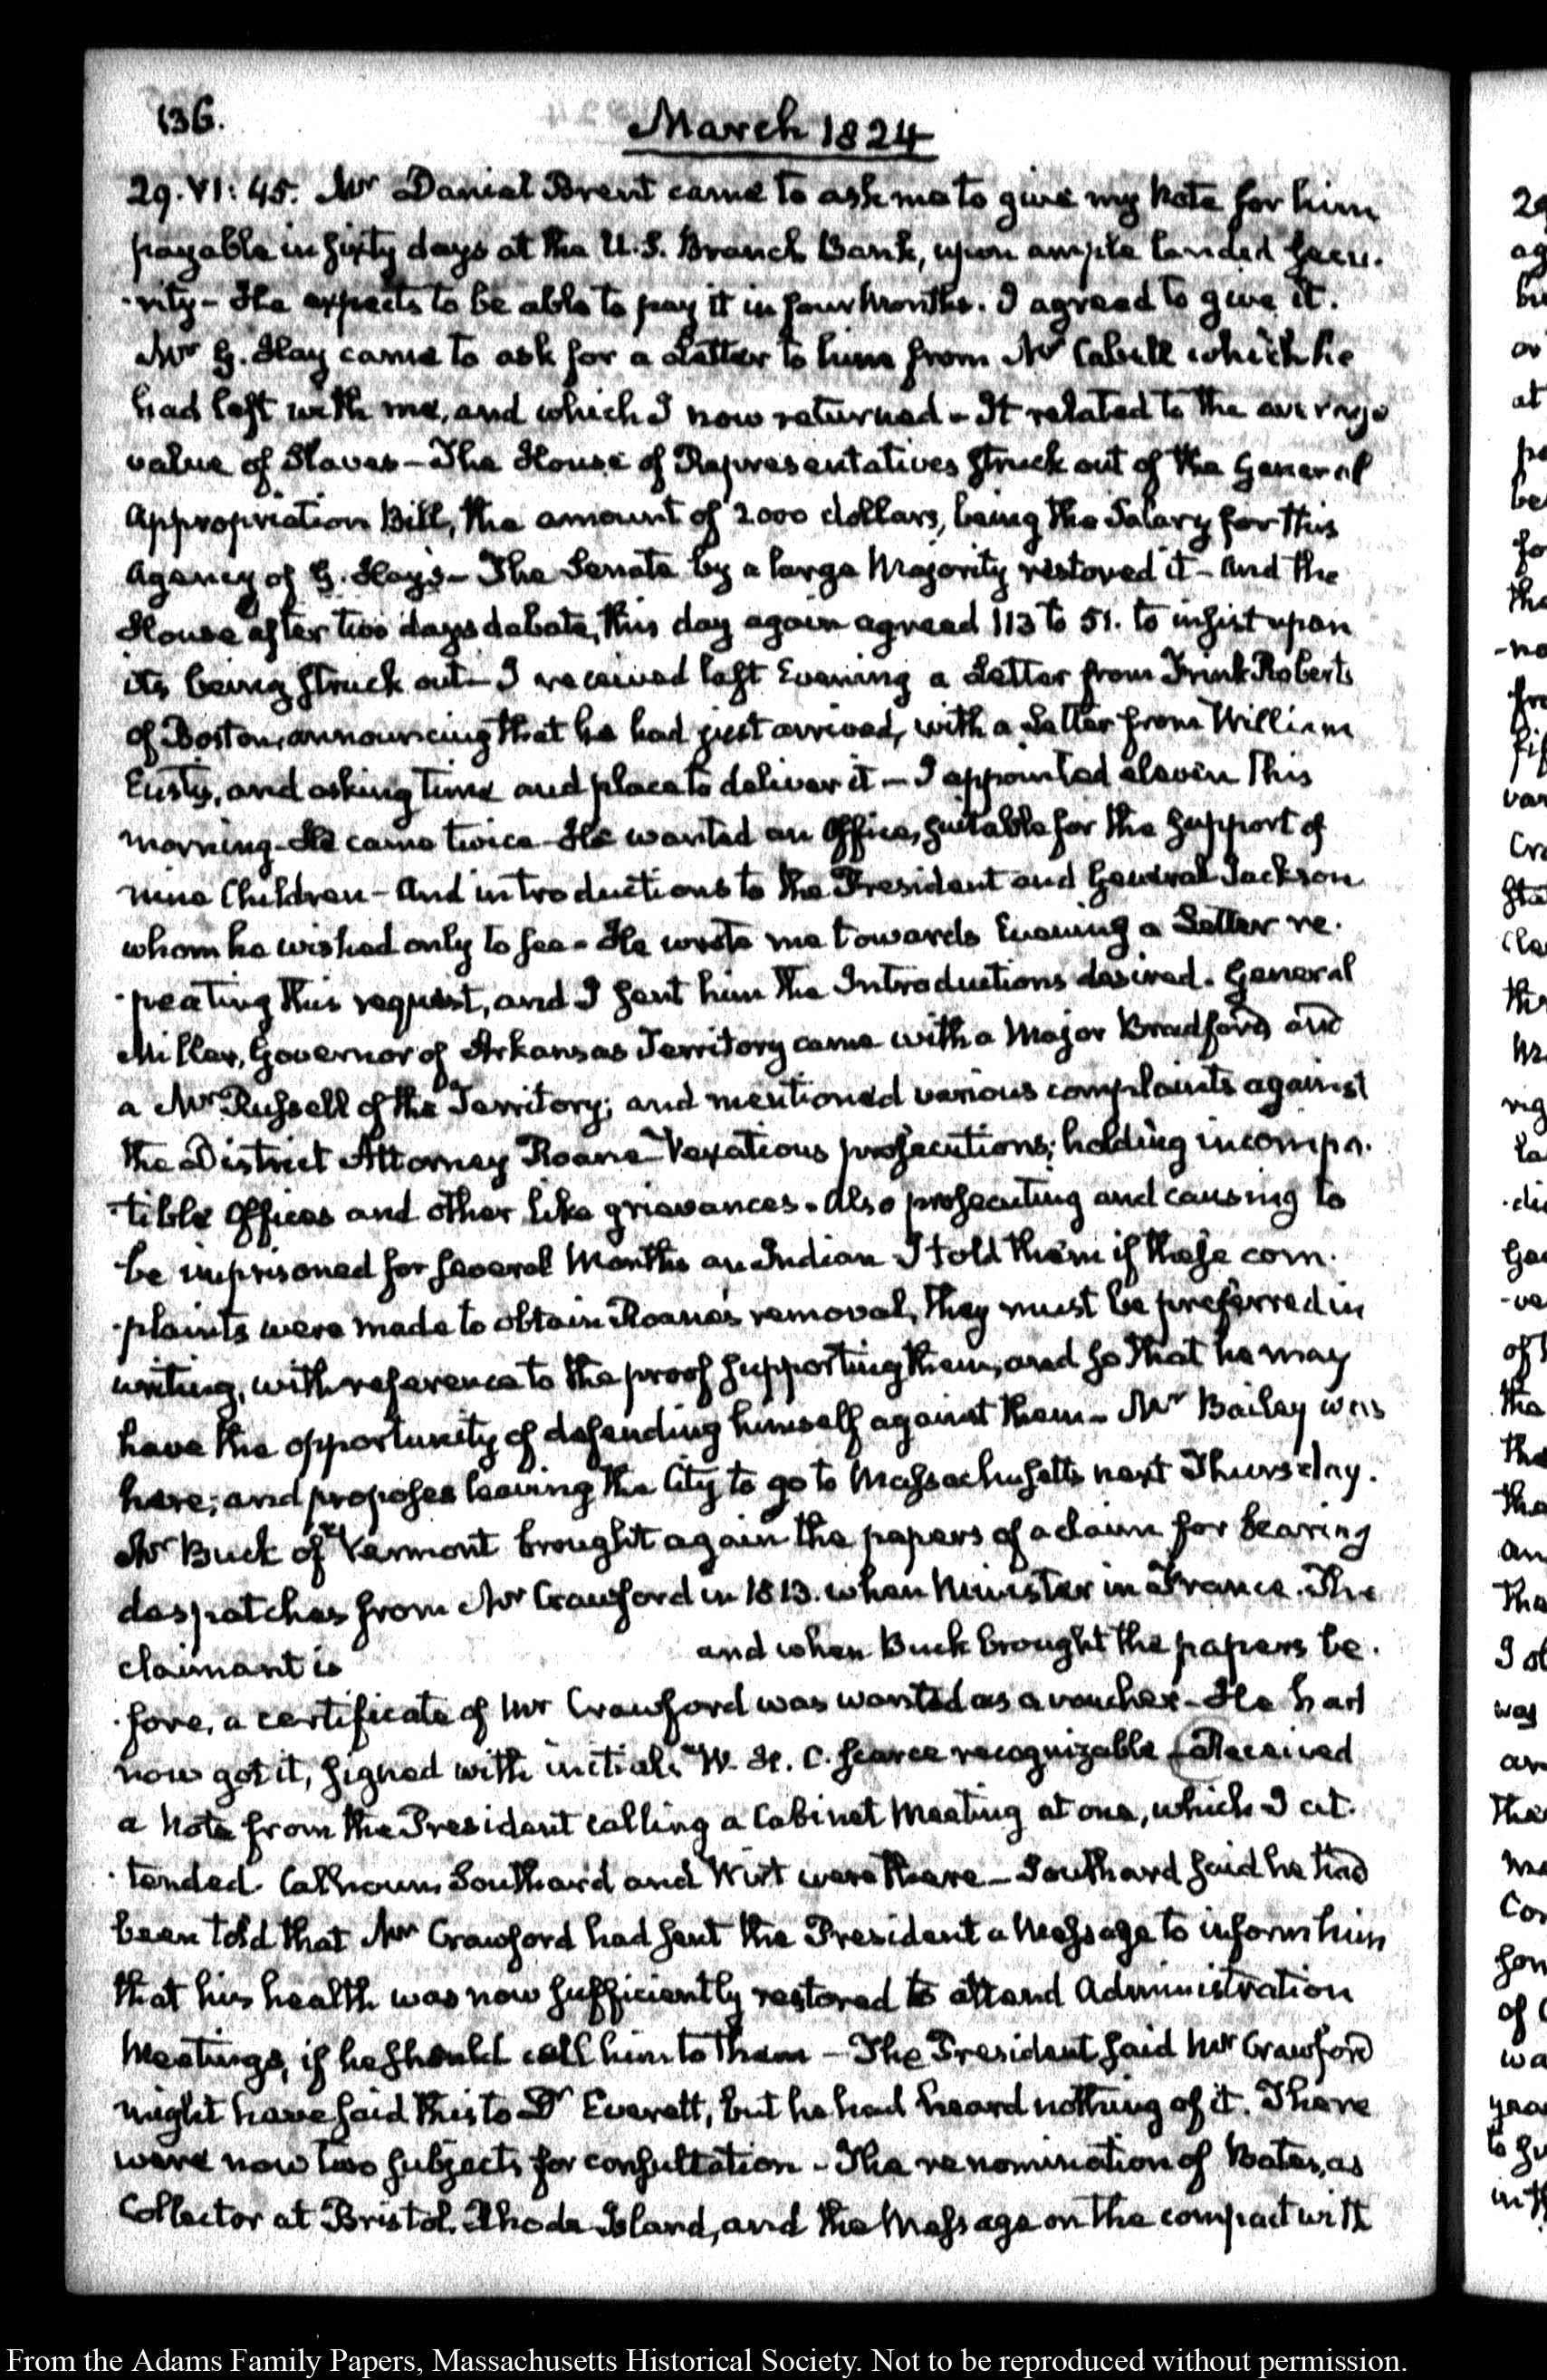 136.
March 1824
29. VI: 45. Mr Daniel Brent came to ask me to give my Note for him
payable in sixty days at the U.S. Branch Bank, upon ample landed secu-
-rity- He expects to be able to pay it in four Months. I agreed to give it.
Mr G. Hay came to ask for a Letter to him from Mr Cabell which he
had left with me, and which I now returned - It related to the average
value of Slaves - The House of Representatives struck out of the General
Appropriation Bill, the amount of 2000 dollars, being the Salary for this
Agency of G. Hay's - The Senate by a large Majority restored it - And the
House after two days debate, this day again agreed 113 to 51. to insist upon
its being struck out - I received last Evening a Letter from Frink Roberts
of Boston, announcing that he had just arrived, with a Letter from William
Eustis, and asking time and place to deliver it - I appointed eleven this
morning - He came twice - He wanted an Office, suitable for the support of
nine Children - And introductions to the President and General Jackson
whom he wished only to see - He wrote me towards Evening a Letter re-
-peating this request, and I sent him the Introductions desired. General
Miller, Governor of Arkansas Territory came with a Major Bradford, and
a Mr Russell of the Territory; and mentioned various complaints against
the District Attorney Roane - Vexatious prosecutions; holding incompa-
-tible Offices and other like grievances. Also prosecuting and causing to
be imprisoned for several Months an Indian I told them if these com-
-plaints were made to obtain Roane's removal, they must be preferred in
writing, with reference to the proof supporting them, and so that he may
have the opportunity of defending himself against them - Mr Bailey was
here; and proposes leaving the City to go to Massachusetts next Thursday.
Mr Buck of Vermont brought again the papers of a claim for bearing
despatches from Mr Crawford in 1813. when Minister in France. The
claimant is and when Buck brought the papers be-
-fore, a certificate of Mr Crawford was wanted as a voucher - He had
now got it, signed with initials W. H. C. scarce recognizable - Received
a Note from the President calling a Cabinet Meeting at one, which I at-
-tended. Calhoun, Southard and Wirt were there - Southard said he had
been told that Mr Crawford had sent the President a Message to inform him
that his health was now sufficiently restored to attend Administration
Meetings, if he should call him to them - The President said Mr Crawford
might have said this to Dr Everett, but he had heard nothing of it. There
were now two subjects for consultation - The renomination of Bates, as
Collector at Bristol, Rhode Island, and the Message on the compact with
From the Adams Family Papers, Massachusetts Historical Society. Not to be reproduced without permission.